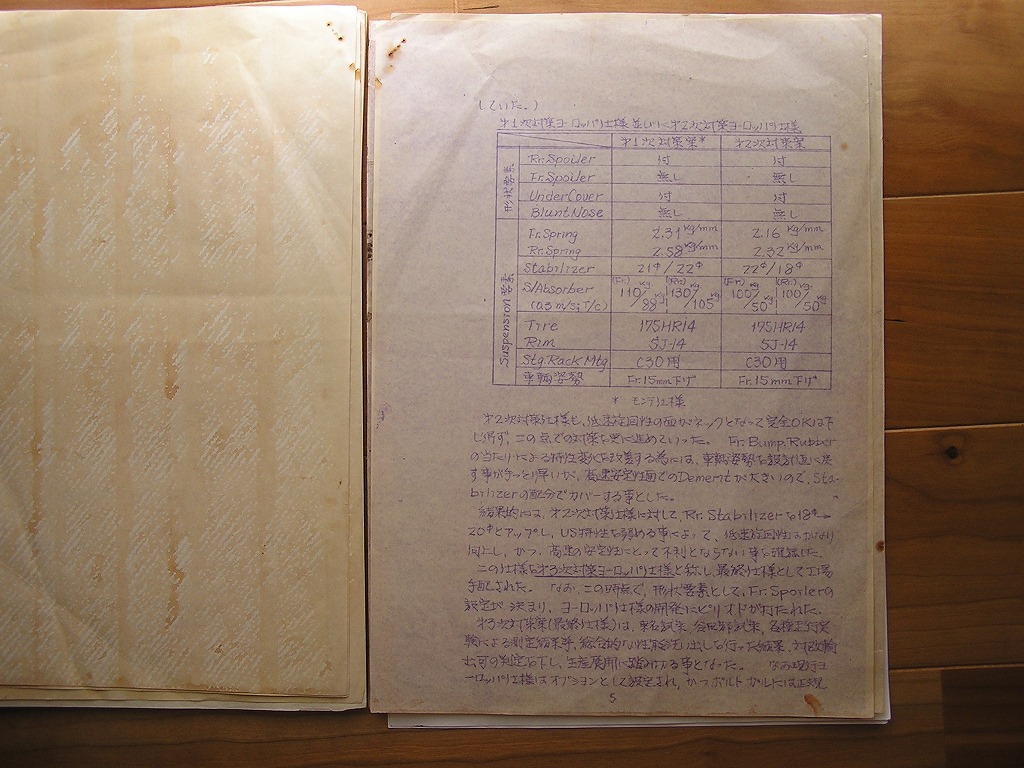 していた。)
才1次対策ヨーロッパ仕様並びに才2次対策ヨーロッパ仕様
才1次対策案* 才2次対策案
形状要素
Rr.Spoiler 付 付
Fr.Spoiler 無し 無し
UnderCover 付 付
Blunt Nose 無し 無し
Suspension要素
Fr.Spring 2.31 Kg/mm 2.16 Kg/mm
Rr.Spring 2.58 Kg/mm 2.32 Kg/mm
Stabilizer 21φ/22φ 22φ/18φ
S/Absorber (Fr) (Rr) (Fr) (Rr)
(0.3 m/s; T/c) 110/88 kg 130/105 kg 100/50 kg 100/50 kg
Tire 175HR14 195HR14
Rim 5J-14 5J-14
Stg.Rack Mtg C30用 C30用
車輌姿勢 Fr.15mm下げ Fr.15mm下げ
* モンテ仕様
才2次対策仕様も、低速旋回性の面がネックとなって完全OKは下
し得ず、この点での対策を更に進めていった。 Fr.Bump.Rubber
の当たりによる特性変化を改善する為には、車輌姿勢を設計値に戻
す事が手っとり早いが、高速安定性面でのDemeritが大きいので、Sta-
bilizerの配分でカバーする事とした。
結果的には、才2次対策仕様に対して、Rr.Stabilizerを18φ→
20φとアップし、US特性を弱める事によって、低速旋回性はかなり
向上し、かつ、高速の安定性にとって不利とならない事を確認した。
この仕様を才3次対策ヨーロッパ仕様と称し、最終仕様として工場
手配された。 なお、この時点で、形状要素として、Fr.Spoilerの
設定が決まり、ヨーロッパ仕様の開発にピリオドが打たれた。
才3次対策案(最終仕様)は、東名試乗、谷田部試乗、各種走行実
験による測定結果等、総合的な性能洗い出しを行った結果、対欧輸
出可の判定を下し、生産展開に踏み切る事となった。 なお現行ヨ
ーロッパ仕様はオプションとして設定され、かつポルトガルには正規
5